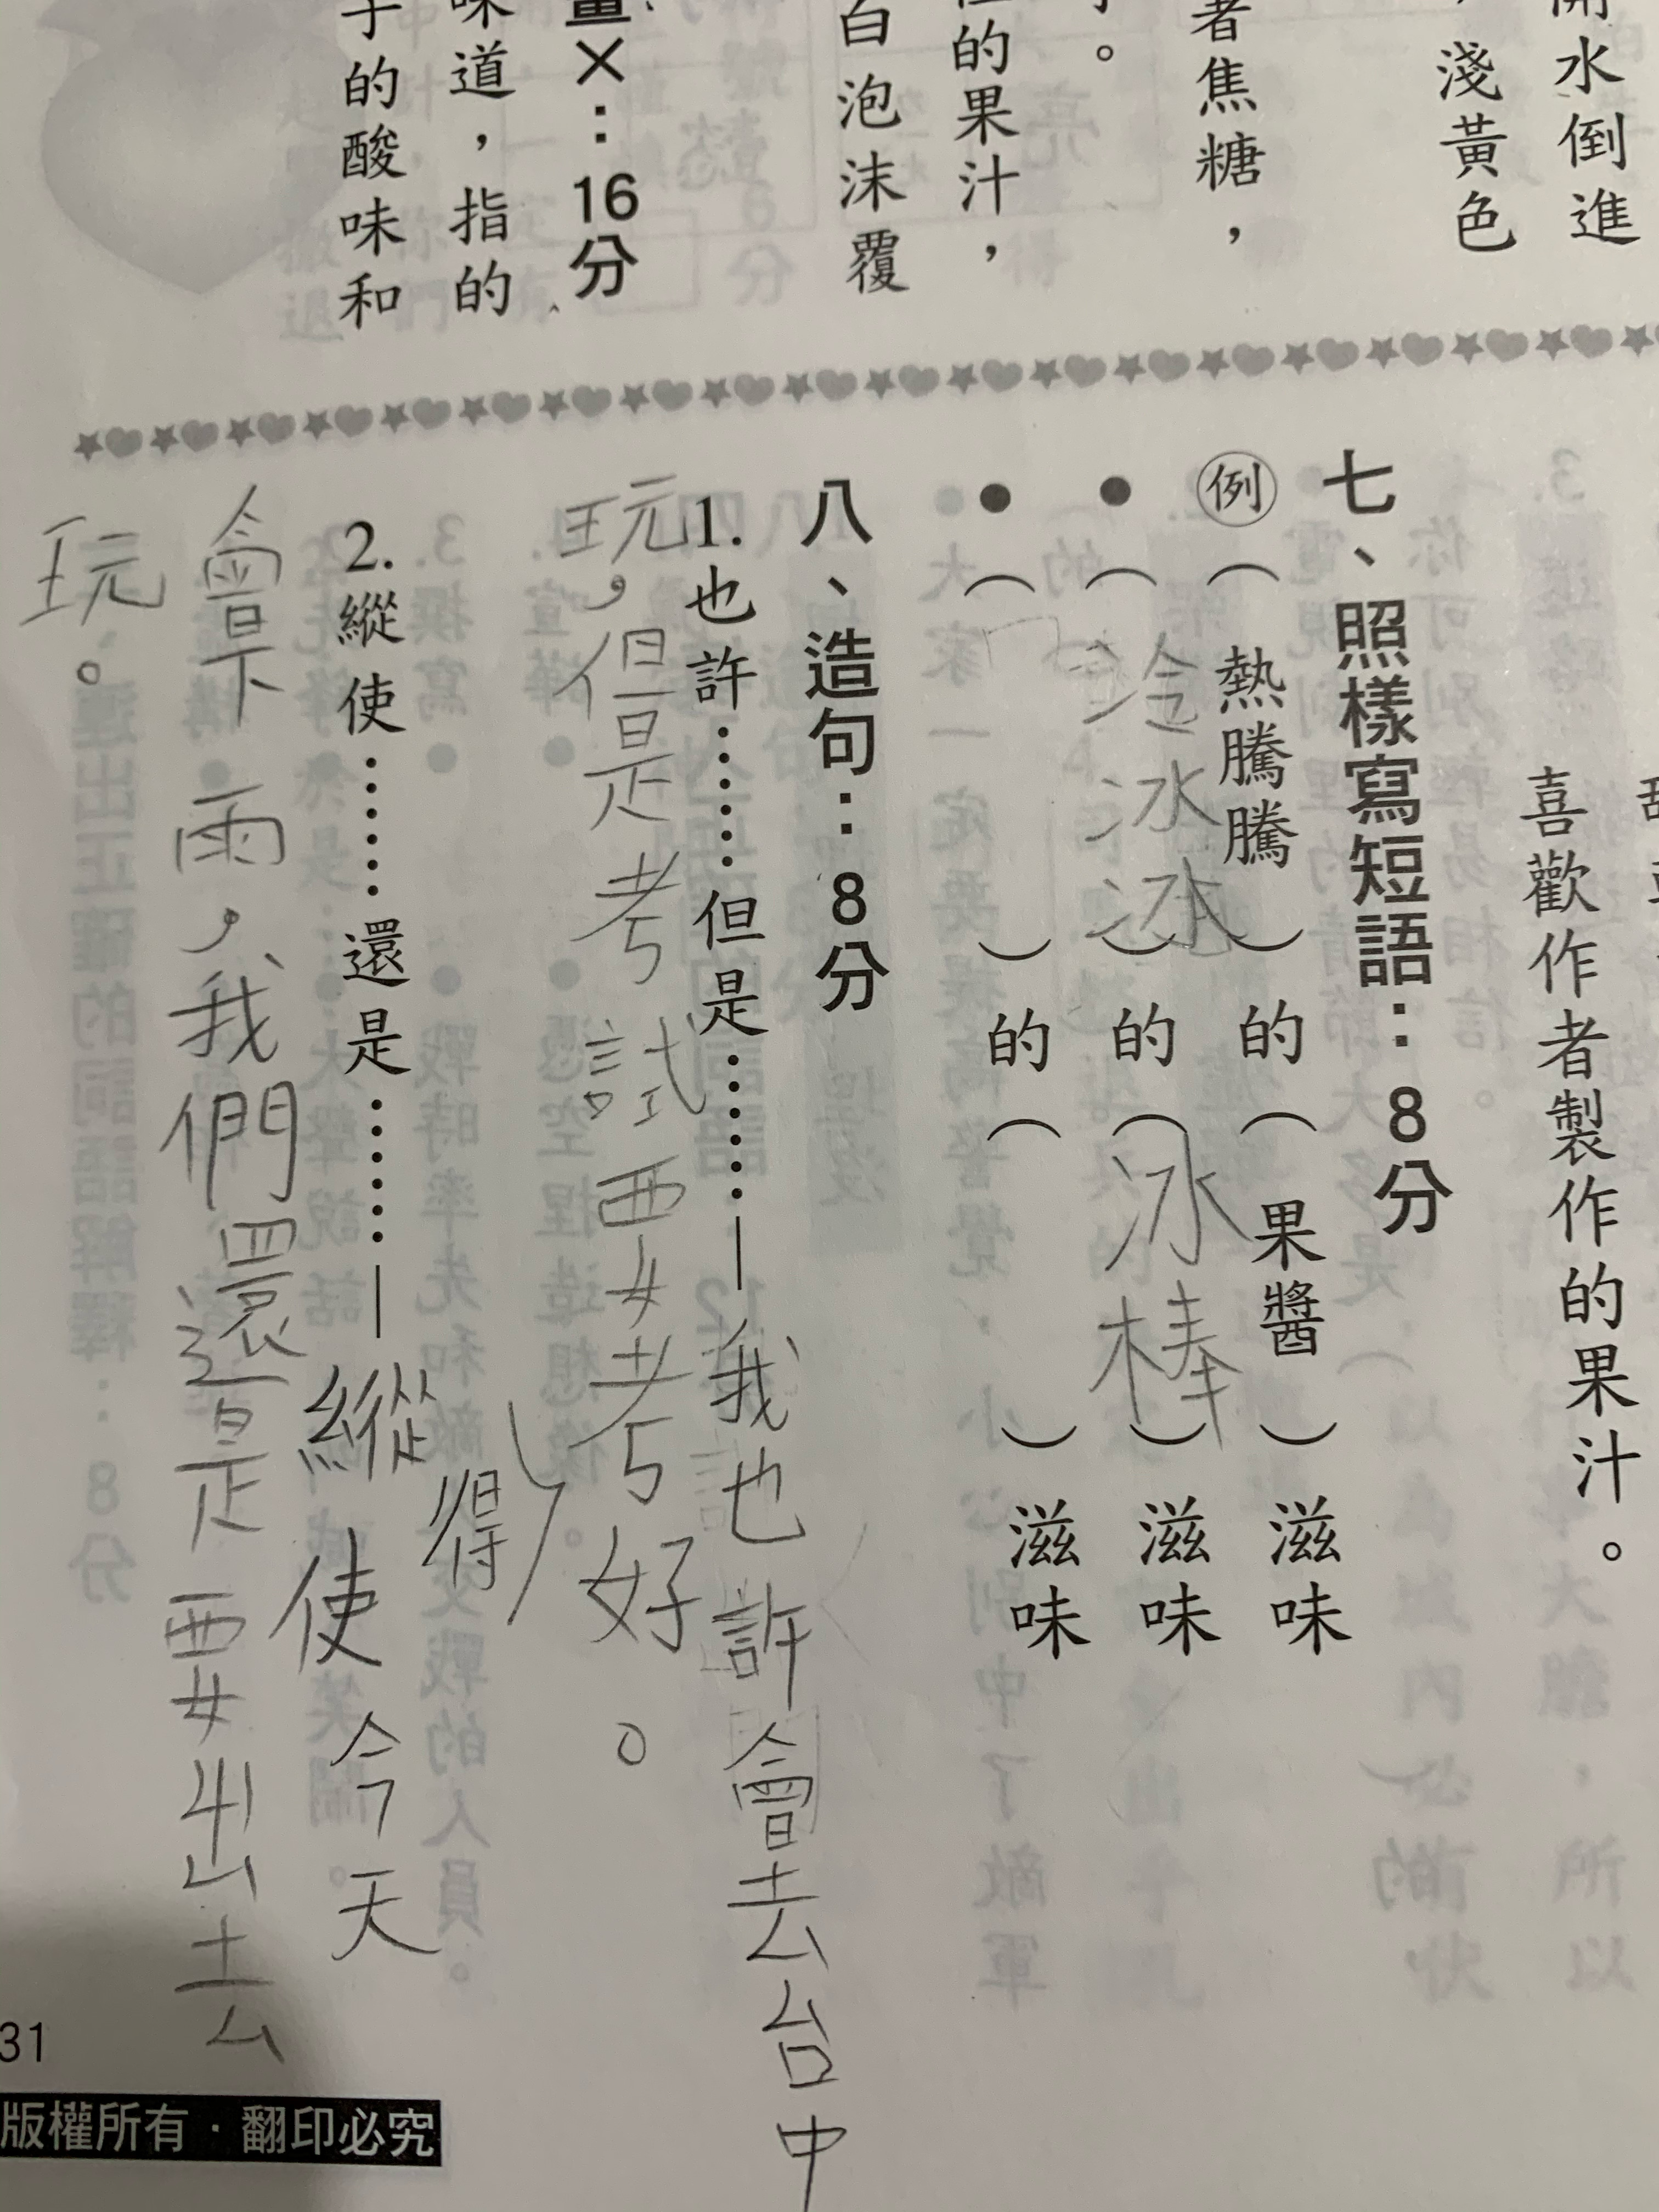 開水倒進
，淺黃色
者焦糖，
的果汁，
白泡沫覆
×：16分
味道，指的
子的酸味和
喜歡作者製作的果汁。
七、照樣寫短語：8分
例（熱騰騰）的（果醬）滋味
●（冷冰冰）的（冰棒）滋味
●（　）的（　）滋味
八、造句：8分
1.也許……但是……—我也許會去台中
玩，但是考試要考得好。
2.縱使……還是……—縱使今天
會下雨，我們還是要出去
玩。
31
版權所有·翻印必究